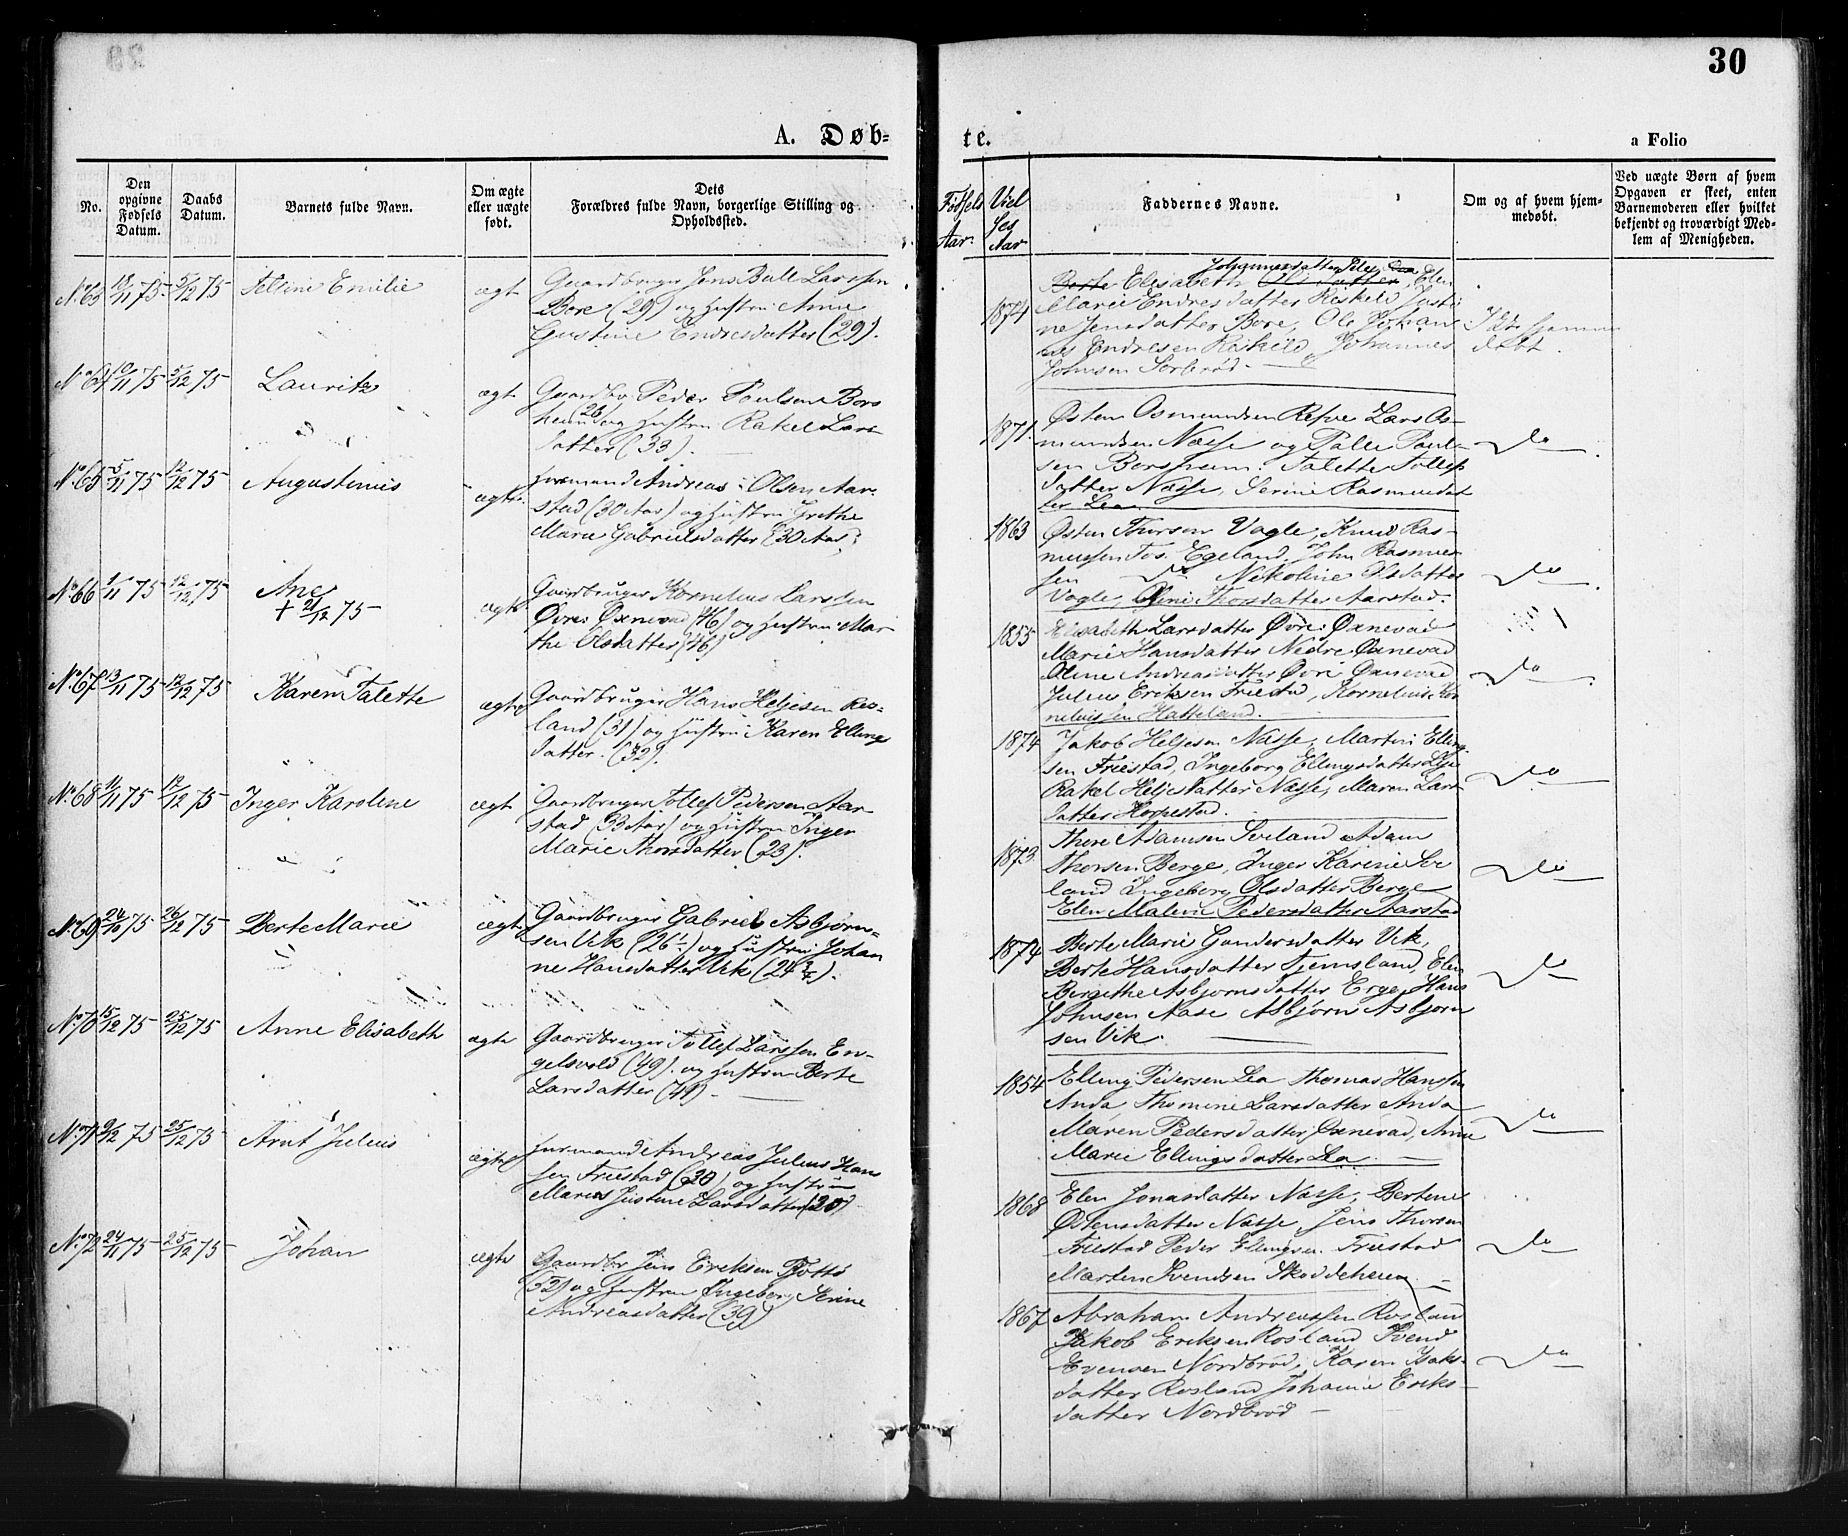 30
A. Døb-
te.
a Folio
No.
Den opgivne Fødsels Datum.
Daabs Datum.
Barnets fulde Navn.
Om ægte eller uægte født.
Dets Forældres fulde Navn, borgerlige Stilling og Opholdssted.
Fødsels Aar.
Viel ses Aar
Faddernes Navne.
Om og af hvem hjem-medøbt.
Ved uægte Børn af hvem Opgaven er skeet, enten Barnemoderen eller hvilket bekjendt og troværdigt Med-lem af Menigheden.
No 63 18/11 75 5/12 75 Seltine Emilie ægt
Gaardbruger Jens Bull Larssen
Bore (29) og Hustru Anne
Gustine Endresdatter (29).
1874
Johannesdatter
Berte Elisabeth Olsdatter, Elen
Marie Endresdatter Reskild, Justi
ne Jensdatter Bore, Ole Johan
nes Endresen Reskild, Johannes
Johnsen Sorbrød.
Ikke hjemme
døbt.
No 64 10/11 75 5/12 75 Lauritz ægt
Gaardbr. Peder Poulsen Bors
heim (26) og Hustru Rakel Lars
datter (33).
1871.
Østen Osmundsen Refve Lars Os-
mundsen Næsse og Palle Poul-
sen Borsheim. Talette Tollefs
datter Næsse, Serine Rasmusdat
ter Lea
Do
No 65 5/11 75 12/12 75 Augustinus ægte
furmand Andreas Olsen Aar-
stad (30 Aar) og Hustru Grethe
Marie Gabrielsdatter (30 Aar)
1863
Østen Thorsen Vagle, Knud Ras-
mussen Tos. Egeland, John Rasmus-
sen Do Nikoline Olsdatter
Vagle, Oline Thorsdatter Aarstad.
Do
No 66 1/11 75 12/12 75 Ane ægte
+ 21/12 75
Gaardbruger Kornelius Larssen
Øvre Øxnevad (46) og Hustru Mar
the Olsdatter (46)
1855
Elisabeth Larsdatter Øvre Øxnevad
Marie Hansdatter Nedre Øxnevad
Oline Andreasdatter Øvre Øxnevad
Julius Eriksen Friestad, Kornelius Kor
neliussen Hatteland.
Do
No 67 13/11 75 12/12 75 Karen Talette ægte
Gaardbruger Hans Heljesen Ros-
land (31) og Hustru Karen Ellings
datter. (32).
1874
Jakob Heljesen Næsse, Martin Elling
sen Friestad, Ingeborg Ellingsdatter Lye
Rakel Heljesdatter Næsse, Maren Lars
datter Hoppestad.
Do
No 68 11/11 75 12/12 75 Inger Karoline ægt
Gaardbruger Tollef Pedersen Aar-
stad (33 Aar) og Hustru Inger
Marie Thorsdatter (23).
1873
Thore Adamsen Serland Adam
Thorsen Berge, Inger Karine Ser
land Ingeborg Olsdatter Berge
Elen Malene Pedersdatter Aarstad
Do
No 69 24/10 75 26/12 75 Berte Marie ægte
Gaardbruger Gabriel Asbjørn-
sen Vik (26½) og Hustru Johan
ne Hansdatter Vik (24¾).
1874
Berte Marie Gundersdatter Vik,
Berte Hansdatter Tjemsland, Elen
Bergithe Asbjørnsdatter Erge, Hans
Johnsen Nase Asbjørn Asbjørn
sen Vik.
Do
No 70 15/12 75 25/12 75 Anne Elisabeth ægte
Gaardbruger Tollef Larssen En-
gelsvold (49). og Hustru Berte
Larsdatter (41)
1854
Elling Pedersen Lea Thomas Hanssen
Anda Thomine Larsdatter Anda
Maren Pedersdatter Øxnevad, Anne
Marie Ellingsdatter Lea
Do
No 71 9/12 75 25/12 75 Arnt Julius ægte
furmand Andreas Julius Hans
sen Friestad (20) og Hustru
Maren Justine Larsdatter (28)
1868
Elen Jonasdatter Næsse, Bertine
Østensdatter Næsse, Jens Thorsen
Friestad Peder Ellingsen Friestad
Morten Svendsen Skoddeheien
Do
No 72 24/11 75 25/12 75 Johan ægte
Gaardbr Jens Eriksen
(32) og Hustru Ingeborg Serine
Andreasdatter (39)
1867
Abraham Andreassen Rosland
Jakob Eriksen Rosland Svend
Evensen Nordbrød, Karen Isaks-
datter Rosland Johanne Eriks-
datter Nordbrød
Do